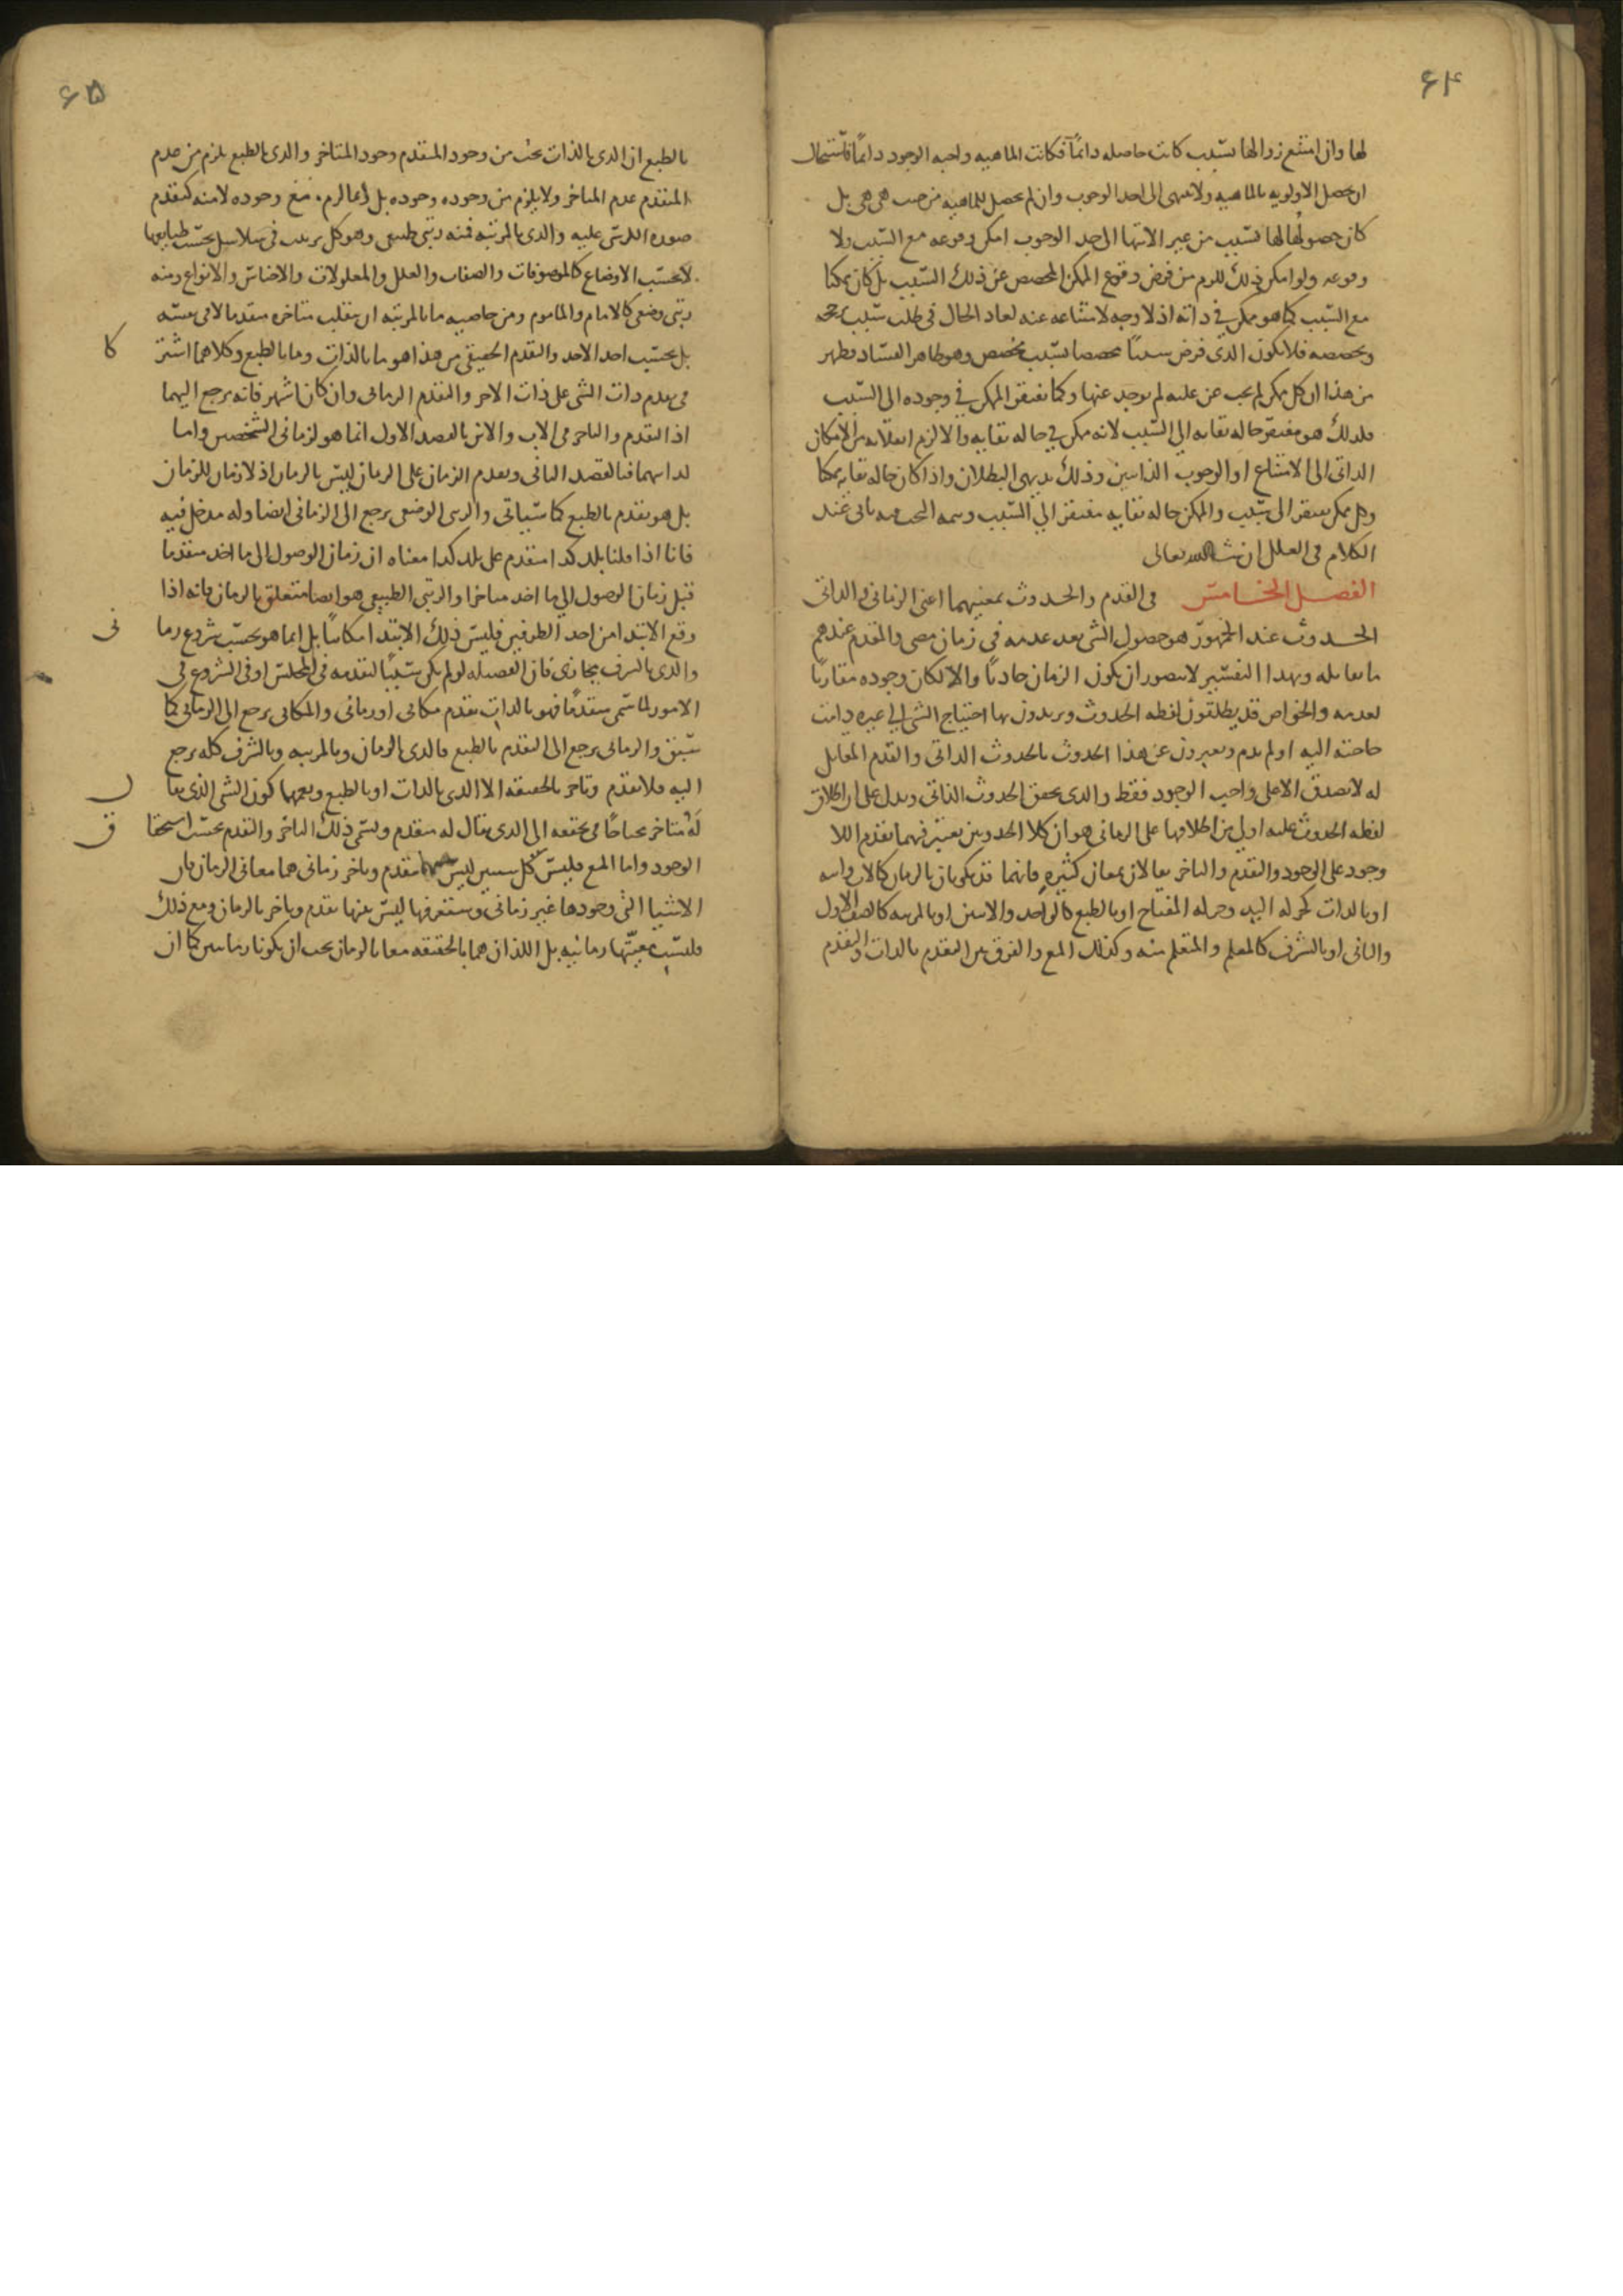 ۶۴
لها وان امتنع زوالها بسبب كانت حاصله دائماً فكانت الماهيه واجبه الوجود دائماً فاستحال
ان تحصل الاولويه بالماهيه ولا تنتهى الى احد الوجوب وان لم تحصل للماهيه من حيث هى هى بل
كان حصولها لها بسبب من غير الانتها الى حد الوجوب امكن وقوعه مع السبب ولا
وقوعه ولو امكن ذلك للزم من فرض وقوع الممكن المخصص عن ذلك السبب بل كان ممكنا
مع السبب كما هو ممكن فى ذاته اذ لا وجه لامتناعه عنه لعاد الحال فى طلب سبب ترجحه
وتخصصه فلا يكون الذى فرض سبباً مخصصا بسبب مخصص وهو ظاهر الفساد فظهر
من هذا ان كل ممكن لم يجب عن علته لم يوجد عنها وكما يفتقر الممكن فى وجوده الى السبب
فلذلك هو مفتقر حاله بقايه الى السبب لانه ممكن فى حاله بقايه والا لزم انقلابه من الامكان
الذاتى الى الامتناع او الوجوب الذاتيين وذلك بديهى البطلان واذا كان حاله بقايه ممكنا
وكل ممكن يفتقر الى سبب والممكن حاله بقايه مفتقر الى السبب وتتمه البحث فيه ياتى عند
الكلام فى العلل ان شا الله تعالى
الفصل الخامس فى القدم والحدوث بمعنيهما اعنى الزمانى والذاتى
الحدوث عند الجمهور هو حصول الشى بعد عدمه فى زمان مضى والقدم عندهم
ما يقابله وبهذا التفسير لا يتصور ان يكون الزمان حادثاً والا لكان وجوده مقارناً
لعدمه والخواص قد يطلقون لفظه الحدوث ويريدون بها احتياج الشى الى غيره دامت
حاجته اليه او لم تدم ويعبرون عن هذا الحدوث بالحدوث الذاتى والقدم المقابل
له لا يصدق الا على واجب الوجود فقط والذى يحقق الحدوث الذاتى ويدل على ان اطلاق
لفظه الحدوث عليه اولى من اطلاقها على الزمانى هو ان كلا الحدوثين يعتبر فيهما تقدم اللا
وجود على الوجود والتقدم والتاخر يقالان بمعان كثيره فانهما قد يكونان بالزمان كالاب وابنه
او بالذات كحركه اليد وحركه المفتاح او بالطبع كالواحد والاثنين او بالمرتبه كالصف الاول
والثانى او بالشرف كالمعلم والمتعلم منه وكذلك المع والفرق بين التقدم بالذات والتقدم
۶۵
بالطبع ان الذى بالذات يجب من وجود المتقدم وجود المتاخر والذى بالطبع يلزم من عدم
المتقدم عدم المتاخر ولا يلزم من وجوده وجوده بل انما لزم مع وجوده لا منه كتقدم
صوره الكرسى عليه والذى بالمرتبه فمنه رتبى طبيعى وهو كل ترتيب فى سلاسل بحسب طبايعها
لا بحسب الاوضاع كالموصوفات والصفات والعلل والمعلولات والاجناس والانواع ومنه
رتبى وضعى كالامام والماموم ومن خاصيه ما بالمرتبه ان ينقلب متاخره متقدما لا فى نفسه
بل بحسب اخذ الاخذ والتقدم الحقيقى من هذا هو ما بالذات وما بالطبع وكلاهما اشتر
كا
فى تقدم ذات الشى على ذات الاخر والتقدم الزمانى وان كان اشهر فانه يرجع اليهما
اذ التقدم والتاخر فى الاب والابن بالقصد الاول انما هو لزمانى الشخصين واما
لذاتيهما فبالقصد الثانى وتقدم الزمان على الزمان ليس بالزمان اذ لا زمان للزمان
بل هو تقدم بالطبع كما سياتى والرتبى الوضعى يرجع الى الزمانى ايضا وله مدخل فيه
فانا اذا قلنا بلد كذا متقدم على بلد كذا معناه ان زمان الوصول الى ما اخذ متقدما
قبل زمان الوصول الى ما اخذ متاخرا والرتبى الطبيعى هو ايضا متعلق بالزمان فانه اذا
وقع الابتدا من احد الطرفين فليس ذلك الابتدا مكانياً بل انما هو بحسب شروع زما
نى
والذى بالشرف مجازى فان الفضيله لو لم تكن سبباً لتقدمه فى المجلس او فى الشروع فى
الامور لما سمى متقدماً فهو بالذات تقدم مكانى او زمانى والمكانى يرجع الى الزمانى كما
سبق والزمانى يرجع الى التقدم بالطبع فالذى بالزمان وبالمرتبه وبالشرف كله يرجع
اليه فلا تقدم وتاخر بالحقيقه الا الذى بالذات او بالطبع ويعمها كون الشى الذى يقا
ل
له متاخر محتاجاً فى تحققه الى الذى يقال له متقدم ويسمى ذلك التاخر والتقدم بحسب استحقا
ق
الوجود واما المع فليس كل شيين ليس بينهما تقدم وتاخر زمانى هما معا فى الزمان فان
الاشيا التى وجودها غير زمانى وستعرفها ليس بينها تقدم وتاخر بالزمان ومع ذلك
فليست معيتها زمانيه بل اللذان هما بالحقيقه معا بالزمان يجب ان يكونا زمانيين كما ان